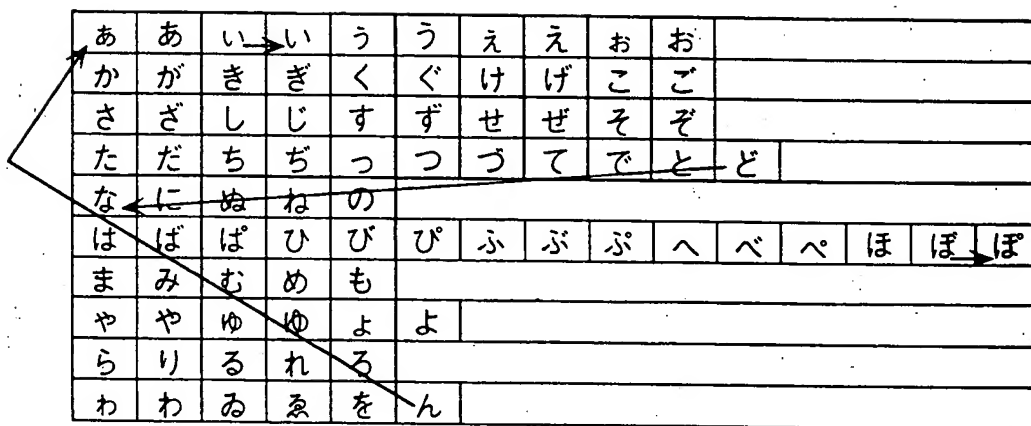 ぁ あ ぃ い ぅ う ぇ え ぉ お
か が き ぎ く ぐ け げ こ ご
さ ざ し じ す ず せ ぜ そ ぞ
た だ ち ぢ っ つ づ て で と ど
な に ぬ ね の
は ば ぱ ひ び ぴ ふ ぶ ぷ へ べ ぺ ほ ぼ ぽ
ま み む め も
ゃ や ゅ ゆ ょ よ
ら り る れ ろ
ゎ わ ゐ ゑ を ん